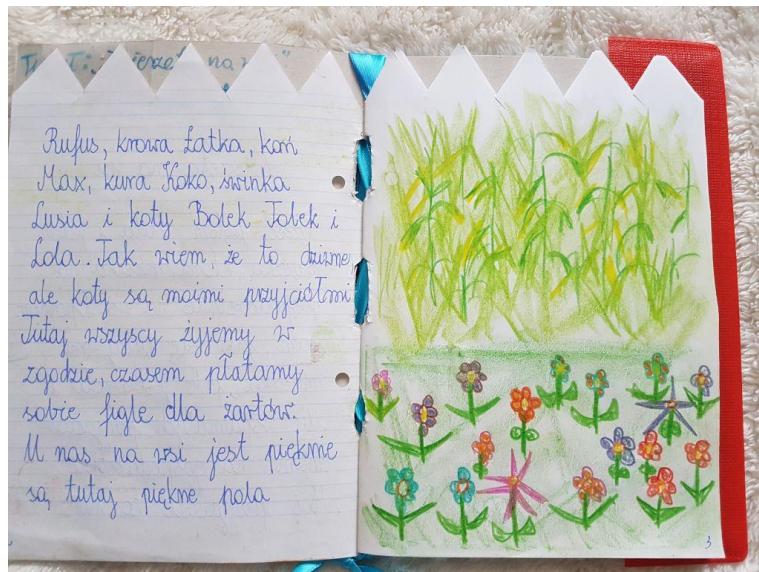 Rufus, krowa Łatka, koń
Max, kura Koko, świnka
Lusia i koty Bolek Tolek i
Lola. Tak wiem, że to dziwne
ale koty są moimi przyjaciółmi
Tutaj wszyscy żyjemy w
zgodzie, czasem płatamy
sobie figle dla żartów.
U nas na wsi jest pięknie
są tutaj piękne pola
3